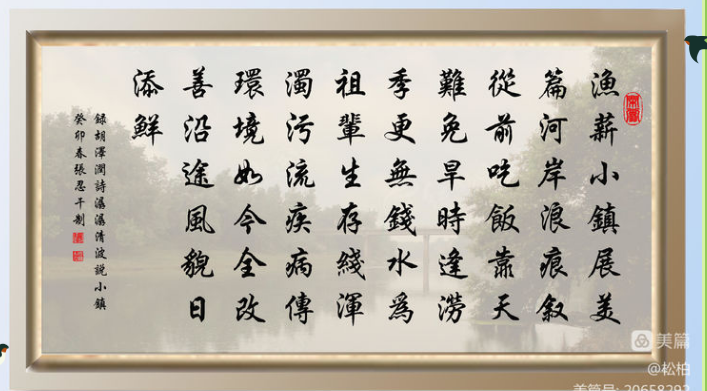 漁薪小鎮展美
篇河岸浪痕叙
從前吃飯靠天
難免旱時逢澇
季更無錢水爲
祖輩生存綫渾
濁污流疾病傳
環境如今全改
善沿途風貌日
添鮮
録胡澤潤詩清波說小鎮
癸卯春張忍制
美篇
@松柏
美篇号: 20658292